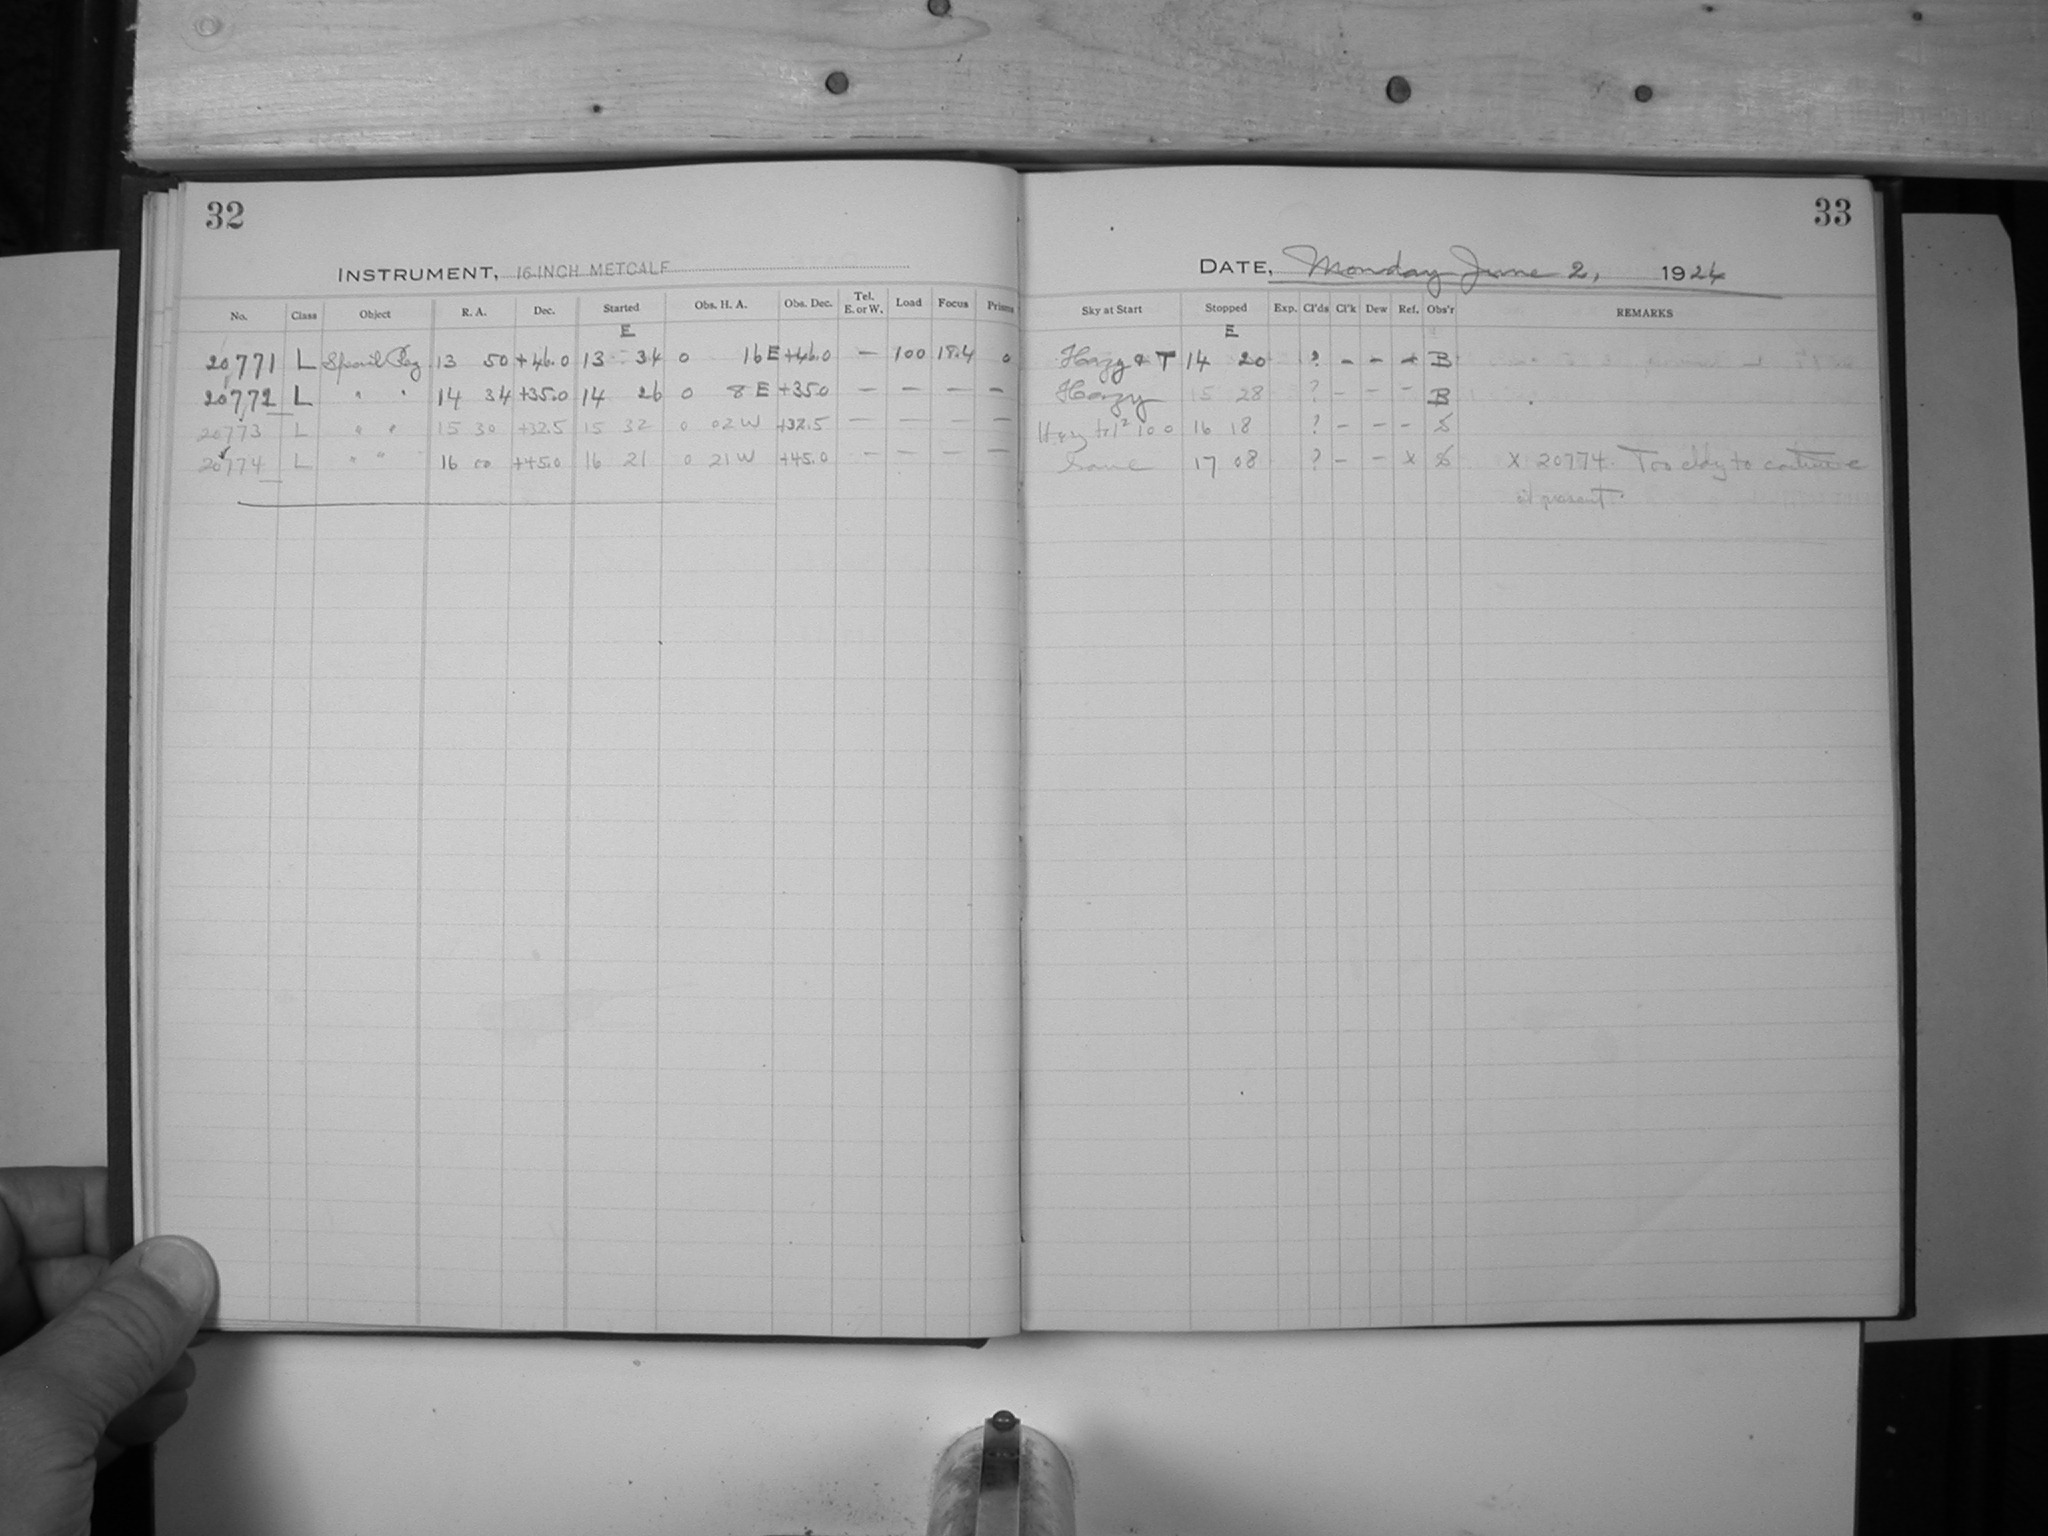 32
INSTRUMENT, 16-INCH METCALF
No. Class Object R. A. Dec. Started Obs. H. A. Obs. Dec. Tel. E. or W. Load Focus Prisms
E
20771 L 13 50 +46.0 13 34 0 16 E +46.0 — 100 18.4 0
20772 L " " 14 34 +35.0 14 26 0 8 E +35.0 — — — —
20773 L " " 15 30 +32.5 15 32 0 02 W +32.5 — — — —
20774 L " " 16 00 +45.0 16 21 0 21 W +45.0 — — — —
33
DATE, Monday June 2, 1924
Sky at Start Stopped Exp. Cl'ds Cl'k Dew Ref. Obs'r REMARKS
E
Hazy & T 14 20 ? - - - B
Hazy 15 28 ? - - - B
16 18 ? - - - S
Same 17 08 ? - - X S X 20774. Too cldy to continue
at present.